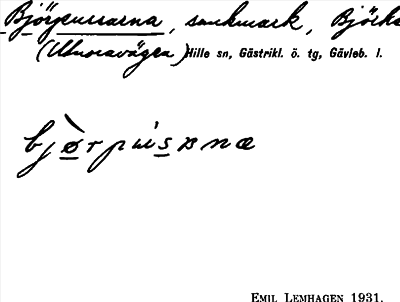 Björpussarna, sankmark, Björke
(Utnoravägen) Hille sn, Gästrikl. ö. tg, Gävleb. l.
bjørpusana
EMIL LEMHAGEN 1931.